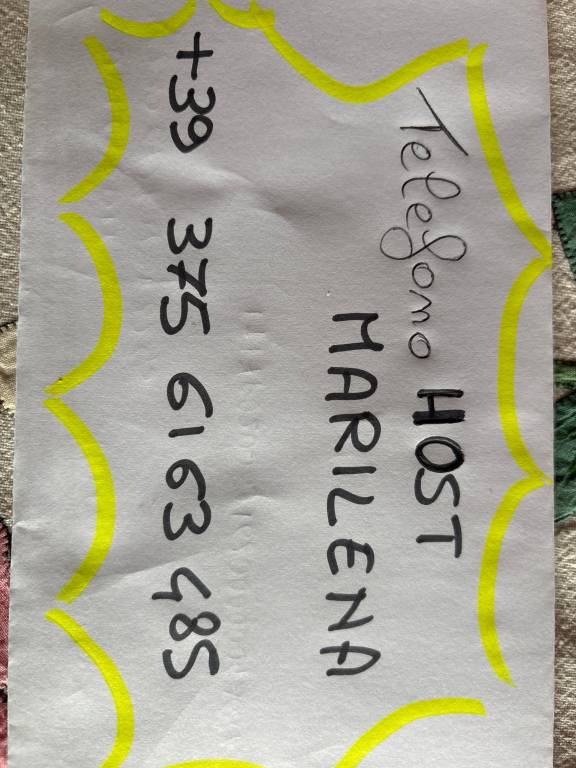 Telefono HOST
MARILENA
+39 375 61 63 485